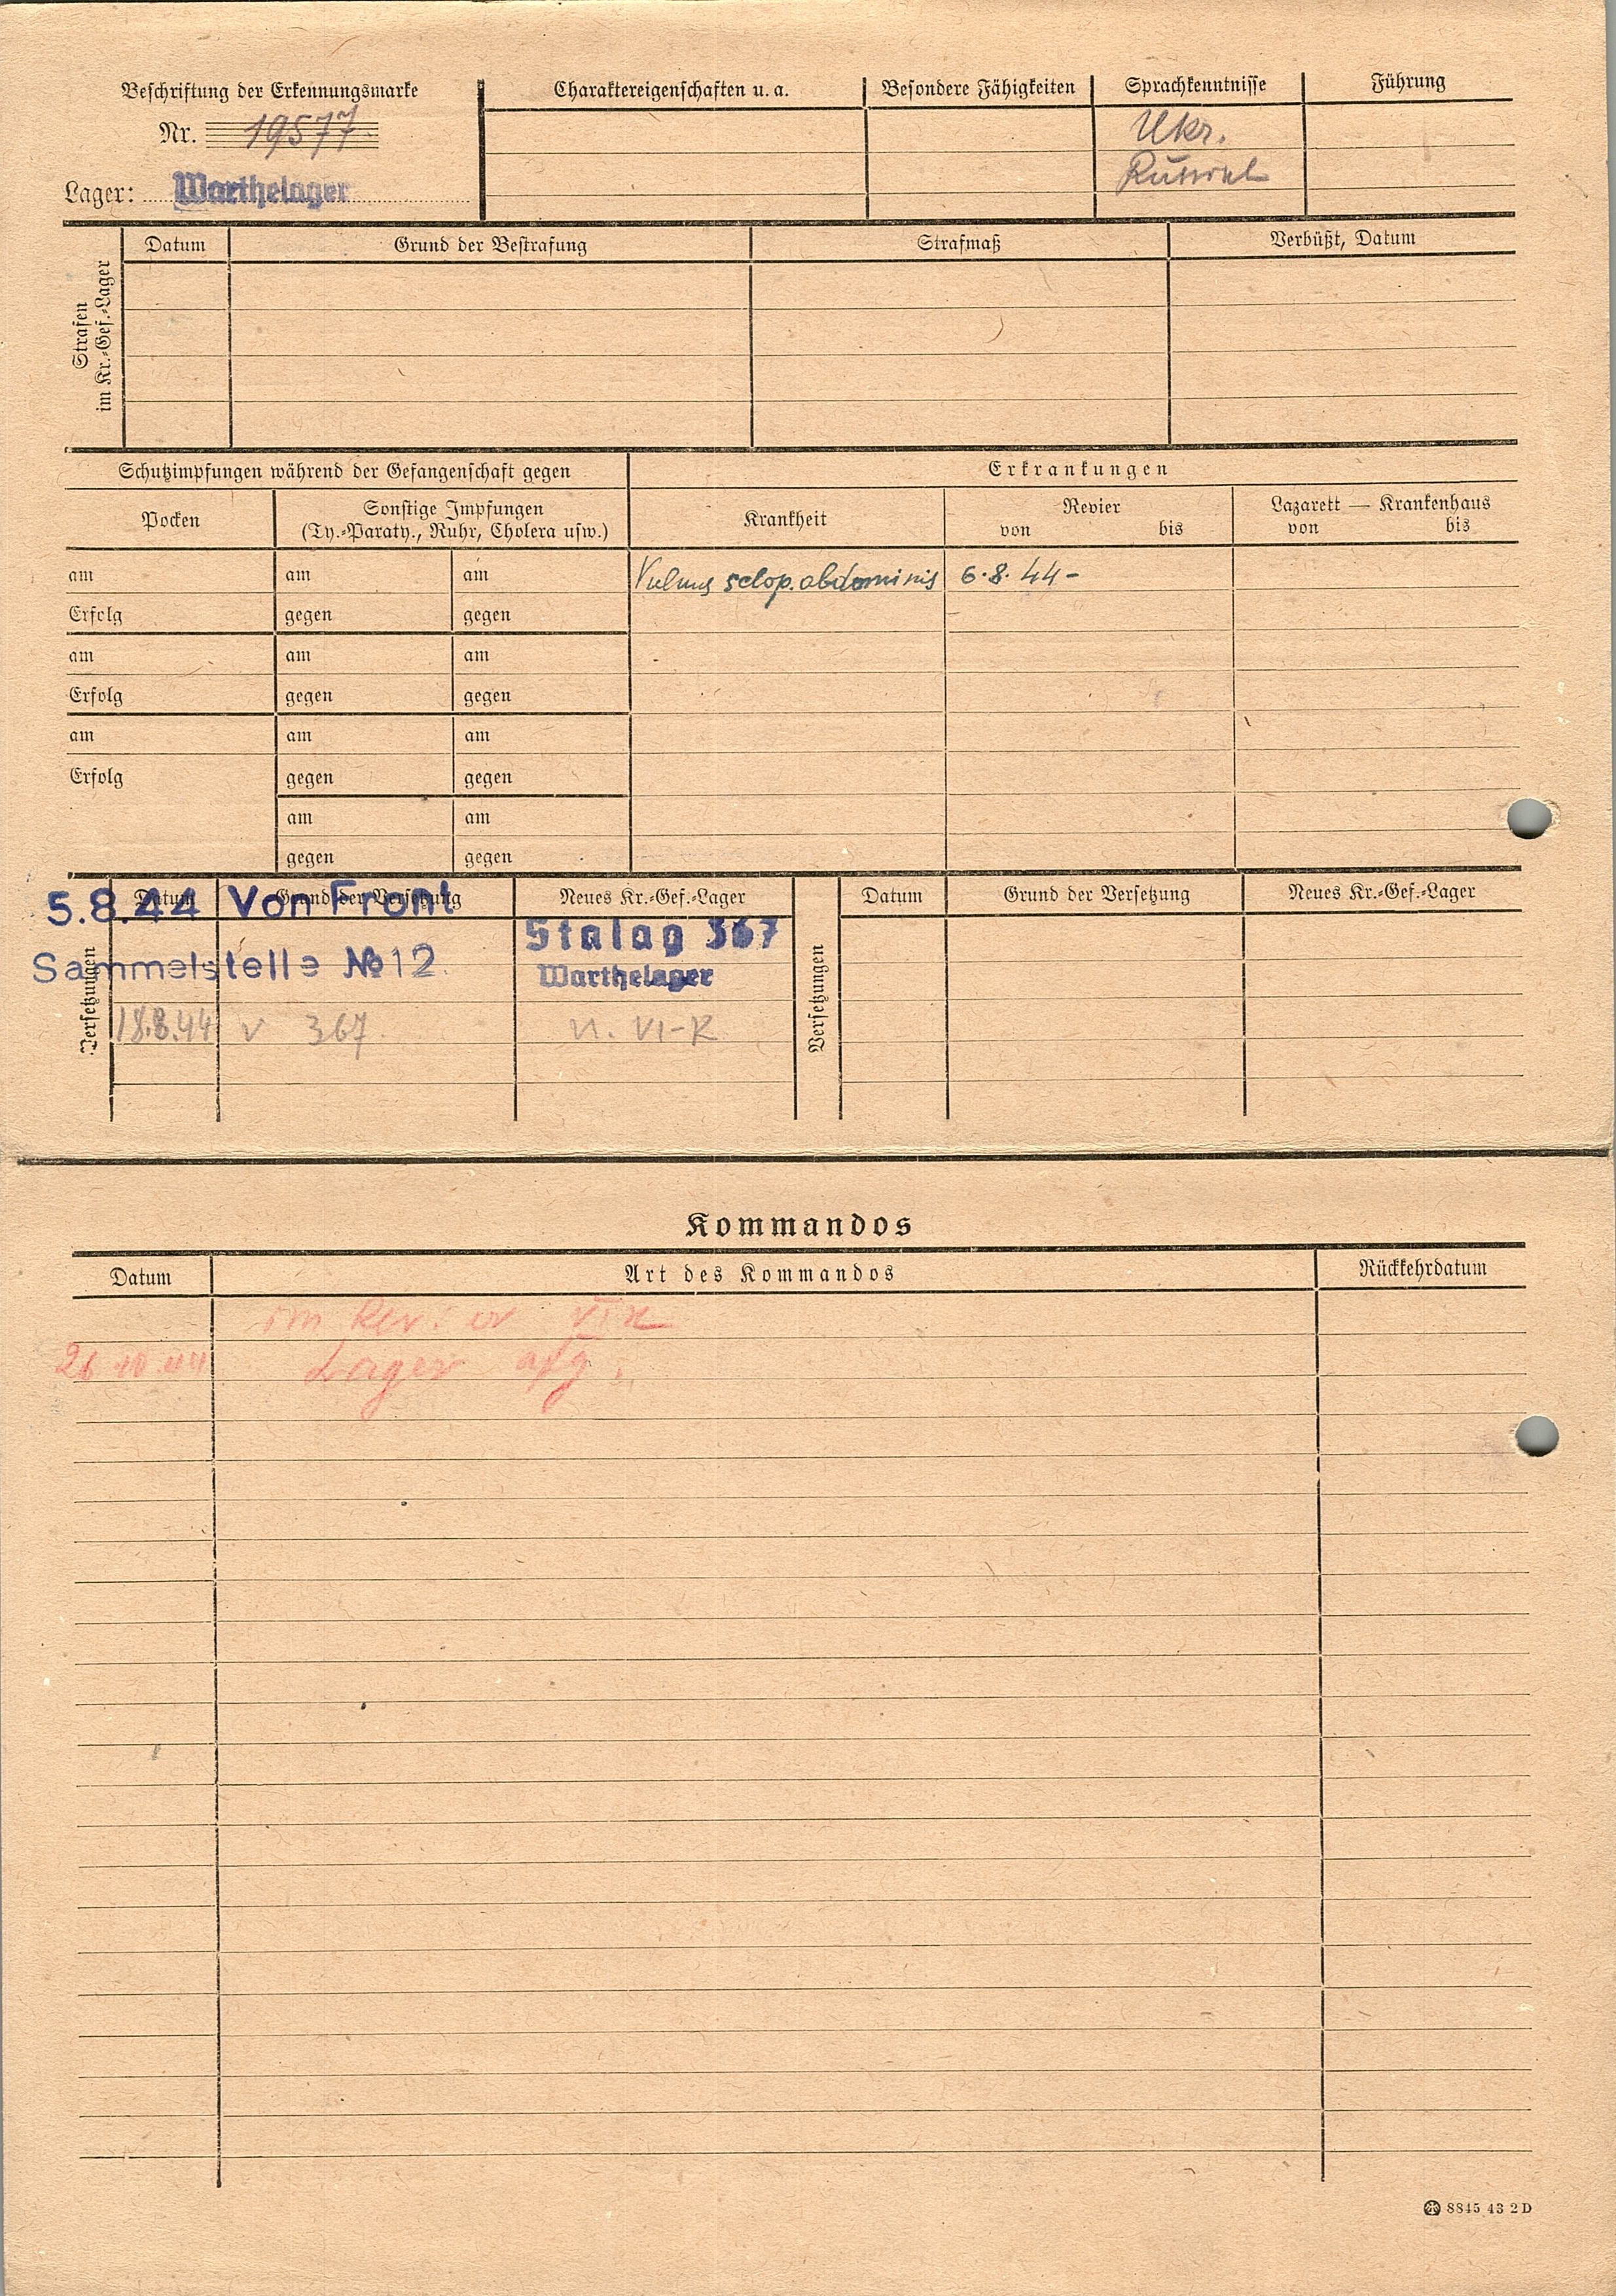 Beschriftung der Erkennungsmarke
Nr. 19577
Lager: Warthelager
Charaktereigenschaften u. a.
Besondere Fähigkeiten
Sprachkenntnisse
Ukr.
Führung
Strafen
im Kr.-Gef.-Lager
Datum
Grund der Bestrafung
Strafmaß
Verbüßt, Datum
Schutzimpfungen während der Gefangenschaft gegen
Erkrankungen
Pocken
Sonstige Impfungen
(Ty.-Paraty., Ruhr, Cholera usw.)
Krankheit
Revier
von bis
Lazarett — Krankenhaus
von bis
am am am Vulnus sclop. abdominis 6.8.44-
Erfolg gegen gegen
am am am
Erfolg gegen gegen
am am am
Erfolg gegen gegen
am am
gegen gegen
Versetzungen
Datum Grund der Versetzung Neues Kr.-Gef.-Lager
5.8.44 Von Front
Stalag 367
Sammelstelle №12. Warthelager
18.8.44 v 367 n. VI-K
Versetzungen
Datum Grund der Versetzung Neues Kr.-Gef.-Lager
Kommandos
Datum Art des Kommandos Rückkehrdatum
im Revier
26.10.44 Lager
8845 43 2D